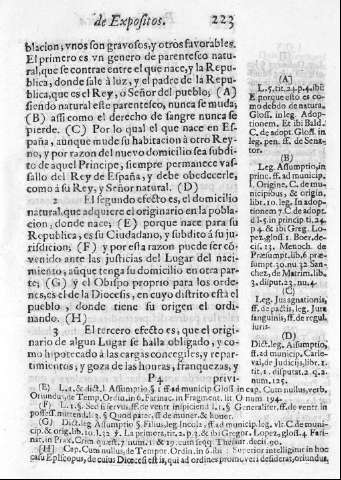 de Expositos. 223
blacion, vnos son gravosos, y otros favorables.
El primero es vn genero de parentesco natu-
ral, que se contrae entre el que nace, y la Repu-
blica, donde sale à luz, y el padre de la Repu-
blica, que es el Rey, o Señor del pueblo; (A)
siendo natural este parentesco, nunca se muda;
(B) assi como el derecho de sangre nunca se
pierde. (C) Por lo qual el que nace en Es-
paña, aunque mude su habitacion à otro Rey-
no, y por razon del nuevo domicilio sea subdi-
to de aquel Principe, siempre permanece vas-
sallo del Rey de España, y debe obedecerle,
como à su Rey, y Señor natural. (D)
2 El segundo efecto es, el domicilio
natural, que adquiere el originario en la pobla-
cion, donde nace; (E) porque nace para su
Republica, es su Ciudadano, y subdito à su ju-
risdicion; (F) y por esta razon puede ser cõ-
venido ante las justicias del Lugar del naci-
miento, aũque tenga su domicilio en otra par-
te; (G) y el Obispo proprio para los orde-
nes, es el de la Diocesis, en cuyo distrito està el
pueblo, donde tiene su origen el orde-
nando. (H)
3 El tercero efecto es, que el origi-
nario de algun Lugar se halla obligado, y co-
mo hipotecado à las cargas concegiles, y repar-
timientos, y goza de las honras, franquezas, y
P4 privi-
(A)
L. 5. tit. 24. p. 4. ibi:
E porque esto es co-
mo debdo de natura.
Gloss. in leg. Adop-
tionem. Et ibi Bald.
C. de adopt. Gloss. in
leg. pen. ff. de Sena-
tor.
(B)
Leg. Assumptio, in
princ. ff. ad municip.
l. Origine, C. de mu-
nicipibus, & origin.
lib. 10. leg. In adop-
tionem 7. C. de adopt.
d. l. 5. in princip. tit. 24.
p. 4. & ibi Greg. Lo-
pez, glos. 1. Boer, de-
cis. 23. Menoch. de
Præsumpt. lib. 6. præ-
sumpt. 30. nu. 32. San-
chez, de Matrim. lib.
3. disput. 23. nu. 4.
(C)
Leg. Jus agnationis,
ff. de pactis, leg. Jura
sanguinis, ff. de regul.
iuris.
(D)
Dict. leg. Assumptio,
ff. ad municip. Carle-
val, de Judiciis, lib. 1.
tit. 1. disput. 2. q. 2.
num. 125.
(E) L. 1. & dict. l. Assumptio. § 1. ff. ad municip. Gloss. in cap. Cum nullus, verb.
Oriundus, de Temp. Ordin. in 6. Farinac. in Fragment. lit. O num. 194.
(F) L. 1. §. Sed si servus, ff. de ventr. inspiciend. l. 1. §. Generaliter, ff. de ventr. in
poss. ff. mittend. l. 3. § Quod pater, ff. de muner. & honor.
(G) Dict. leg. Assumptio §. Filius, leg. Incola, ff. ad municip. leg. vlt. C. de muni-
cip. & orig. lib. 10. l. 32. §. La primera, tit. 2. p. 3. & ibi Gregor. Lopez, glos. 4. Fari-
nac. in Prax. Crim. quæst. 7. num. 11. & 19. cum seqq. Thesaur. decis. 90.
(H) Cap. Cum nullus, de Tempor. Ordin. in 6. ibi: Superior intelligitur in hoc
casu Episcopus, de cuius Diocesi est is, qui ad ordines promoveri desiderat, oriundus,